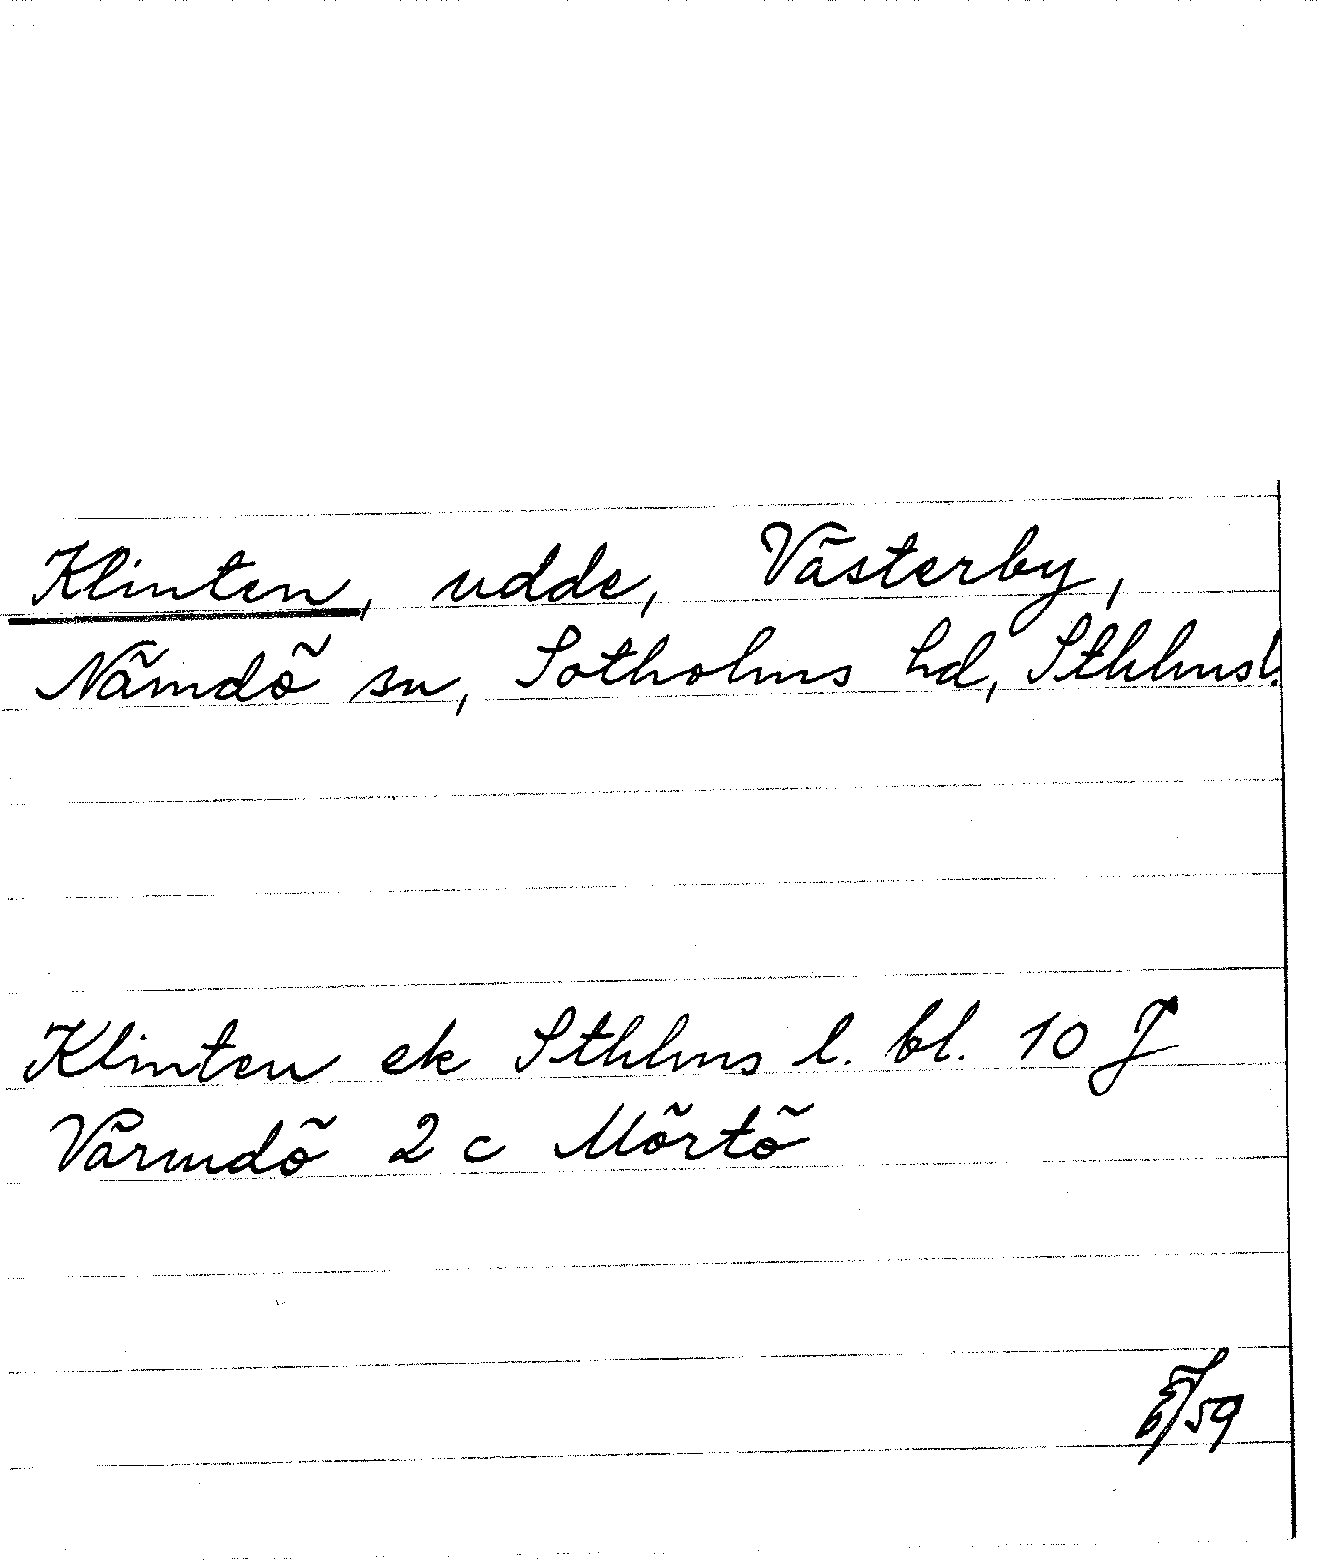 Klinten, udde, Västerby,
Nämdö sn, Sotholms hd, Sthlmsl.
Klinten ek Sthlms l. bl. 10 J
Värmdö 2 c Mörtö
/59